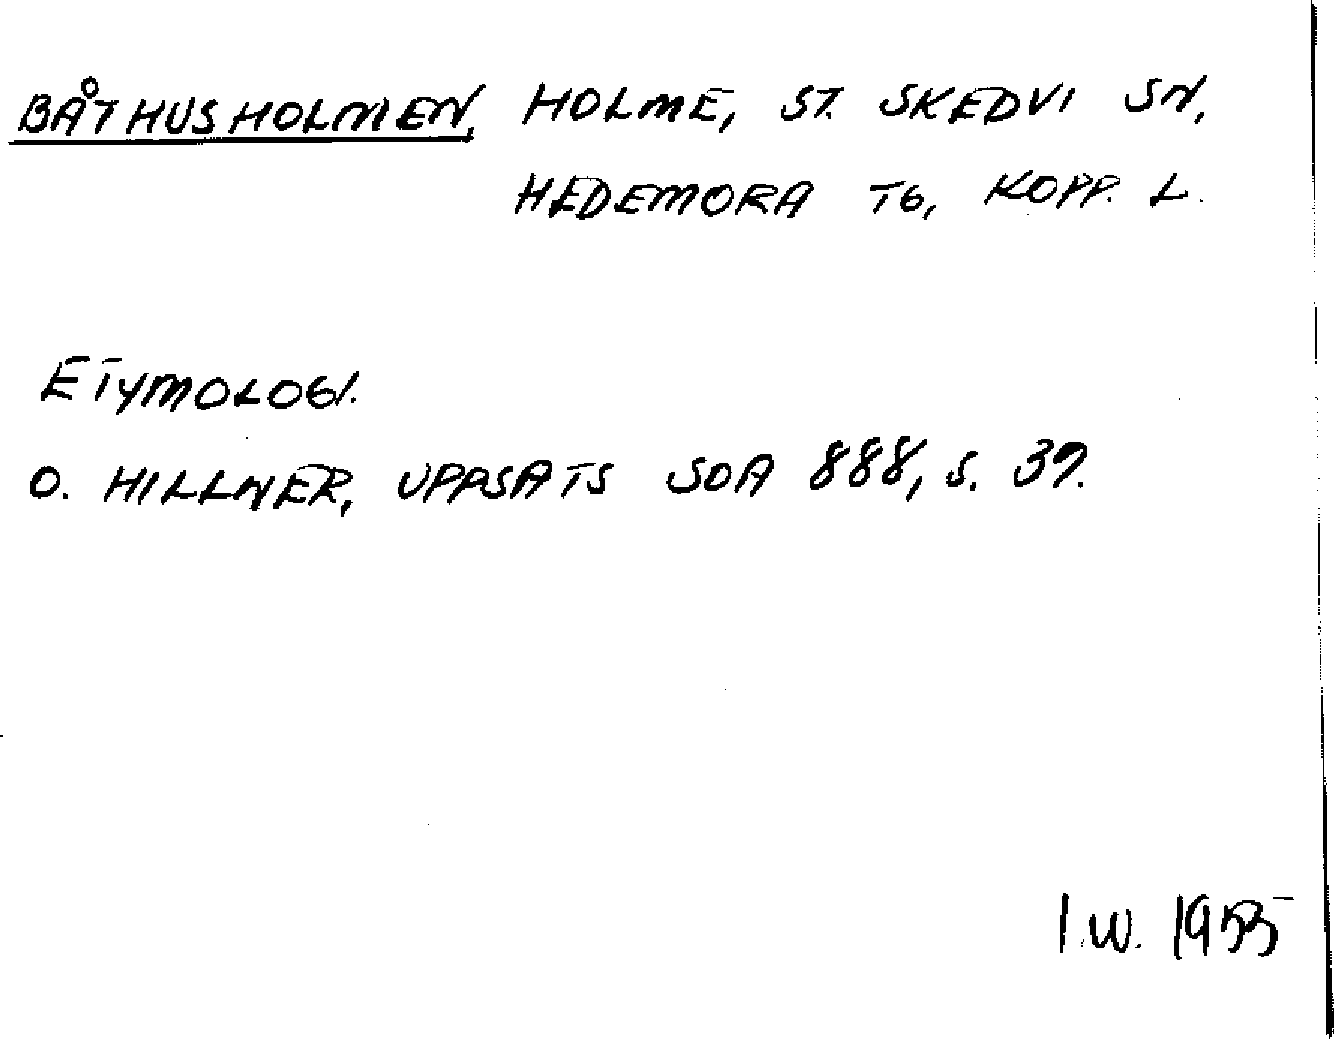 BÅTHUSHOLMEN, HOLME, ST. SKEDVI SN,
HEDEMORA TG, KOPP. L.
ETYMOLOGI.
O. HILLNER, UPPSATS SOA 888, S. 37.
I.W. 1955